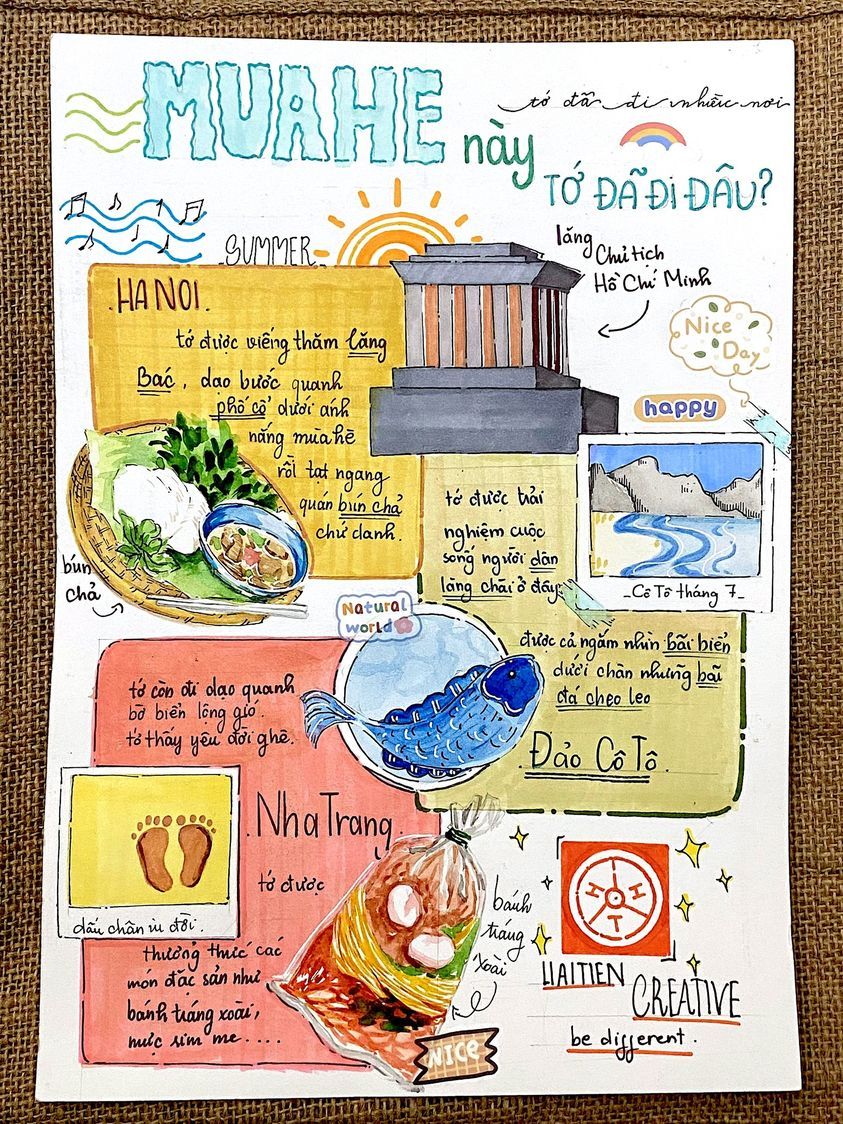 MUAHE
này
tớ đã đi nhiều nơi
TỚ ĐÃ ĐI ĐÂU?
SUMMER
lăng
Chủ tịch
Hồ Chí Minh
HA NOI
tớ được viếng thăm lăng
Bác, dạo bước quanh
phố cổ dưới ánh
nắng mùa hè
rồi tạt ngang
quán bún chả
chứ danh.
bún
chả
Nice
Day
happy
tớ được trải
nghiệm cuộc
sống người dân
làng chài ở đây
_Cô Tô tháng 7_
được cả ngắm nhìn bãi biển
dưới chân những bãi
đá cheo leo
Đảo Cô Tô.
Natural
world
tớ còn đi dạo quanh
bờ biển lộng gió.
tớ thấy yêu đời ghê.
Nha Trang.
dấu chân iu đời.
tớ được
thưởng thức các
món đặc sản như
bánh tráng xoài,
mực rim me....
bánh
tráng
xoài
NICE
H H T
HAITIEN
CREATIVE
be different.